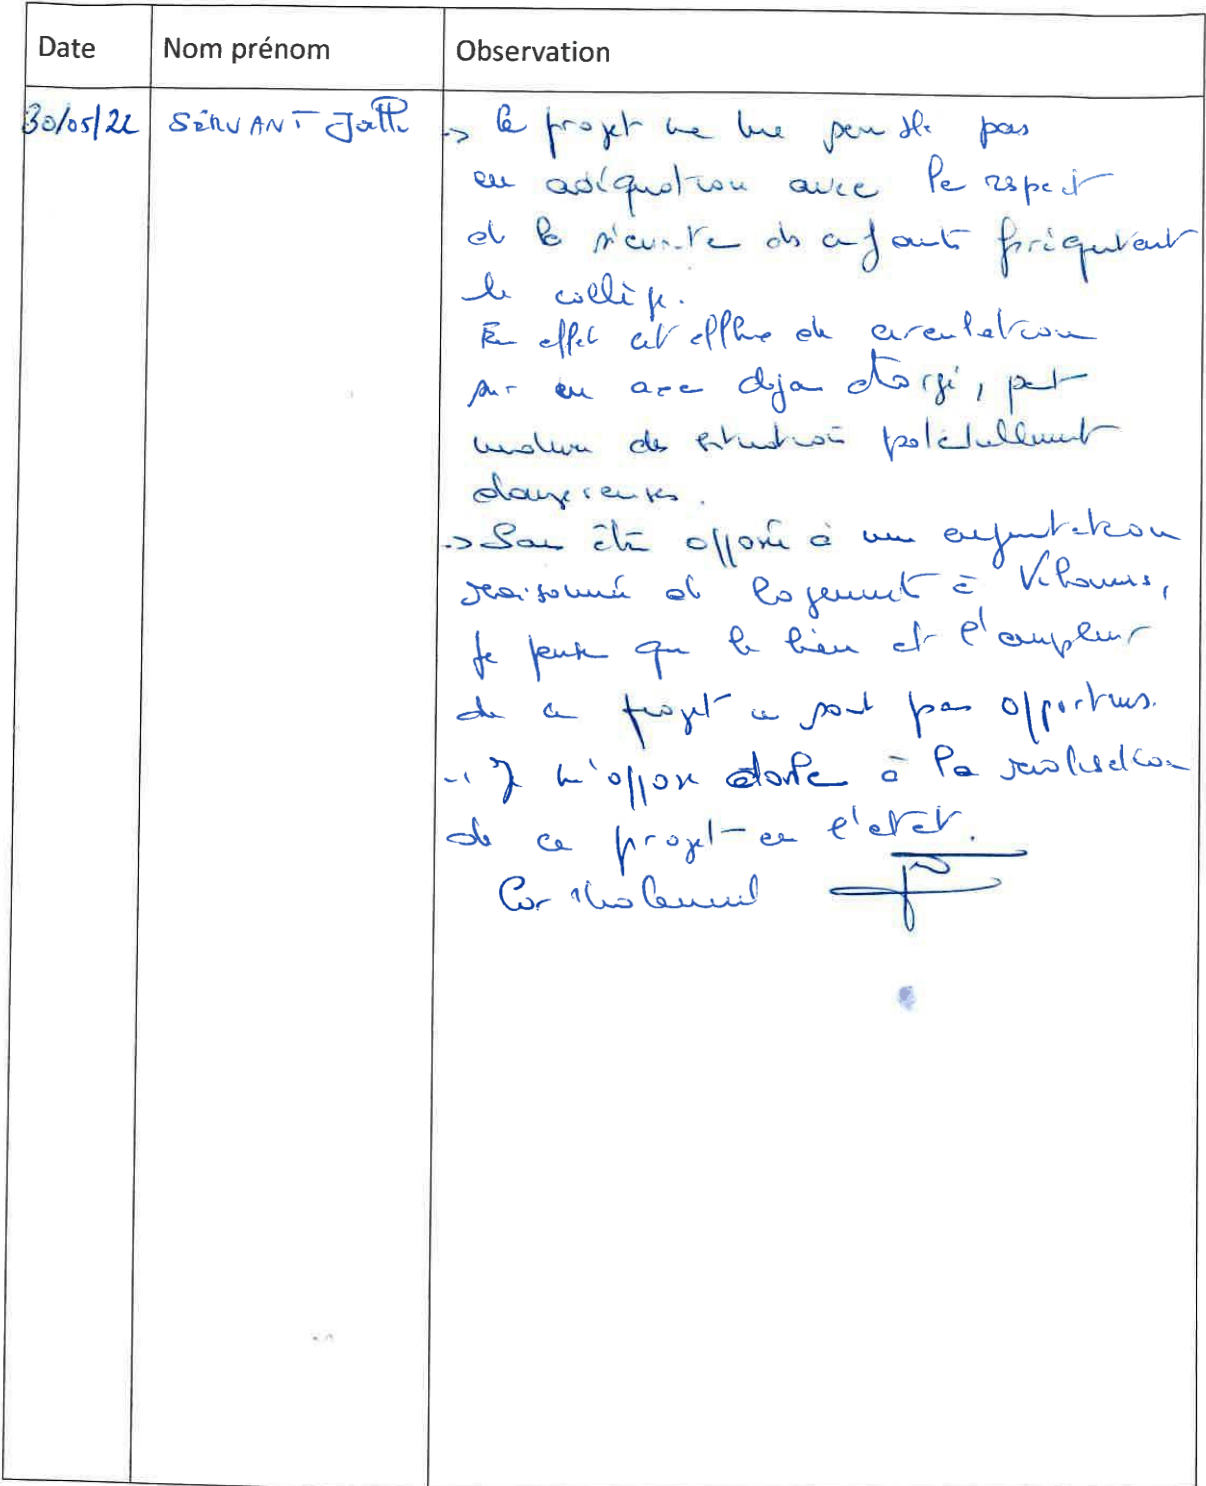 Date Nom prénom Observation
30/05/22 SERVANT -> le projet ne me semble pas
en adéquation avec le respect
et la sécurité des enfants fréquentant
le collège.
En effet cet afflux de circulation
sur un axe déjà chargé, peut
induire des situations potentiellement
dangereuses.
-> Sans être opposé à une augmentation
raisonnée de logement à
je pense que le lieu et l'ampleur
de ce projet ne sont pas opportuns.
-> Je m'oppose donc à la réalisation
de ce projet en l'état.
Cordialement